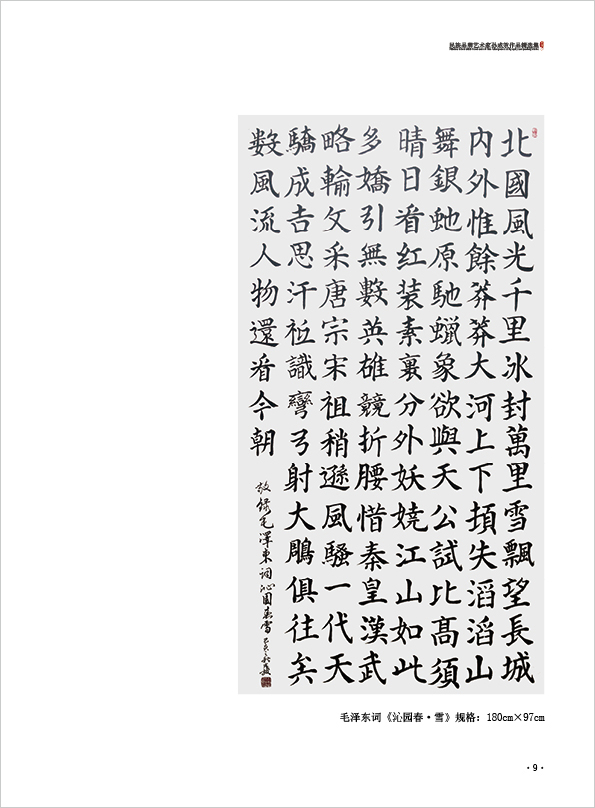 民族品牌艺术家作品精选集
北國風光千里冰封萬里雪飄望長城
内外惟餘莽莽大河上下頓失滔滔山
舞銀虵原馳蠟象欲與天公試比高須
晴日看红装素裹分外妖娆江山如此
多嬌引無數英雄競折腰惜秦皇漢武
略輸文采唐宗宋祖稍遜風騷一代天
驕成吉思汗衹識彎弓射大鵰俱往矣
数風流人物還看今朝
敬錄毛澤東詞沁園春雪
毛泽东词《沁园春·雪》规格：180cm×97cm
·9·